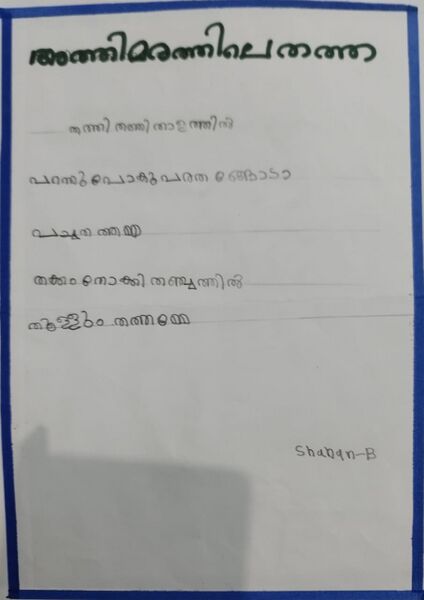 അത്തിമരത്തിലെ തത്ത
തത്തി തത്തി താളത്തിൽ
പറന്നു പോകു
പച്ചത
തക്കം നോക്കി തഞ്ചത്തിൽ
തുള്ളും തത്തമ്മേ
Shaban-B